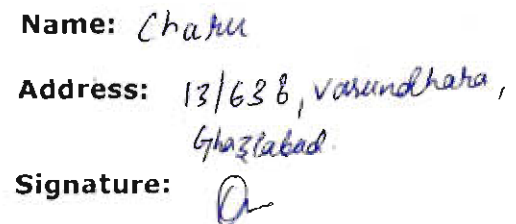 Name: Charu
Address: 13/638, Vasundhara,
Ghaziabad.
Signature: